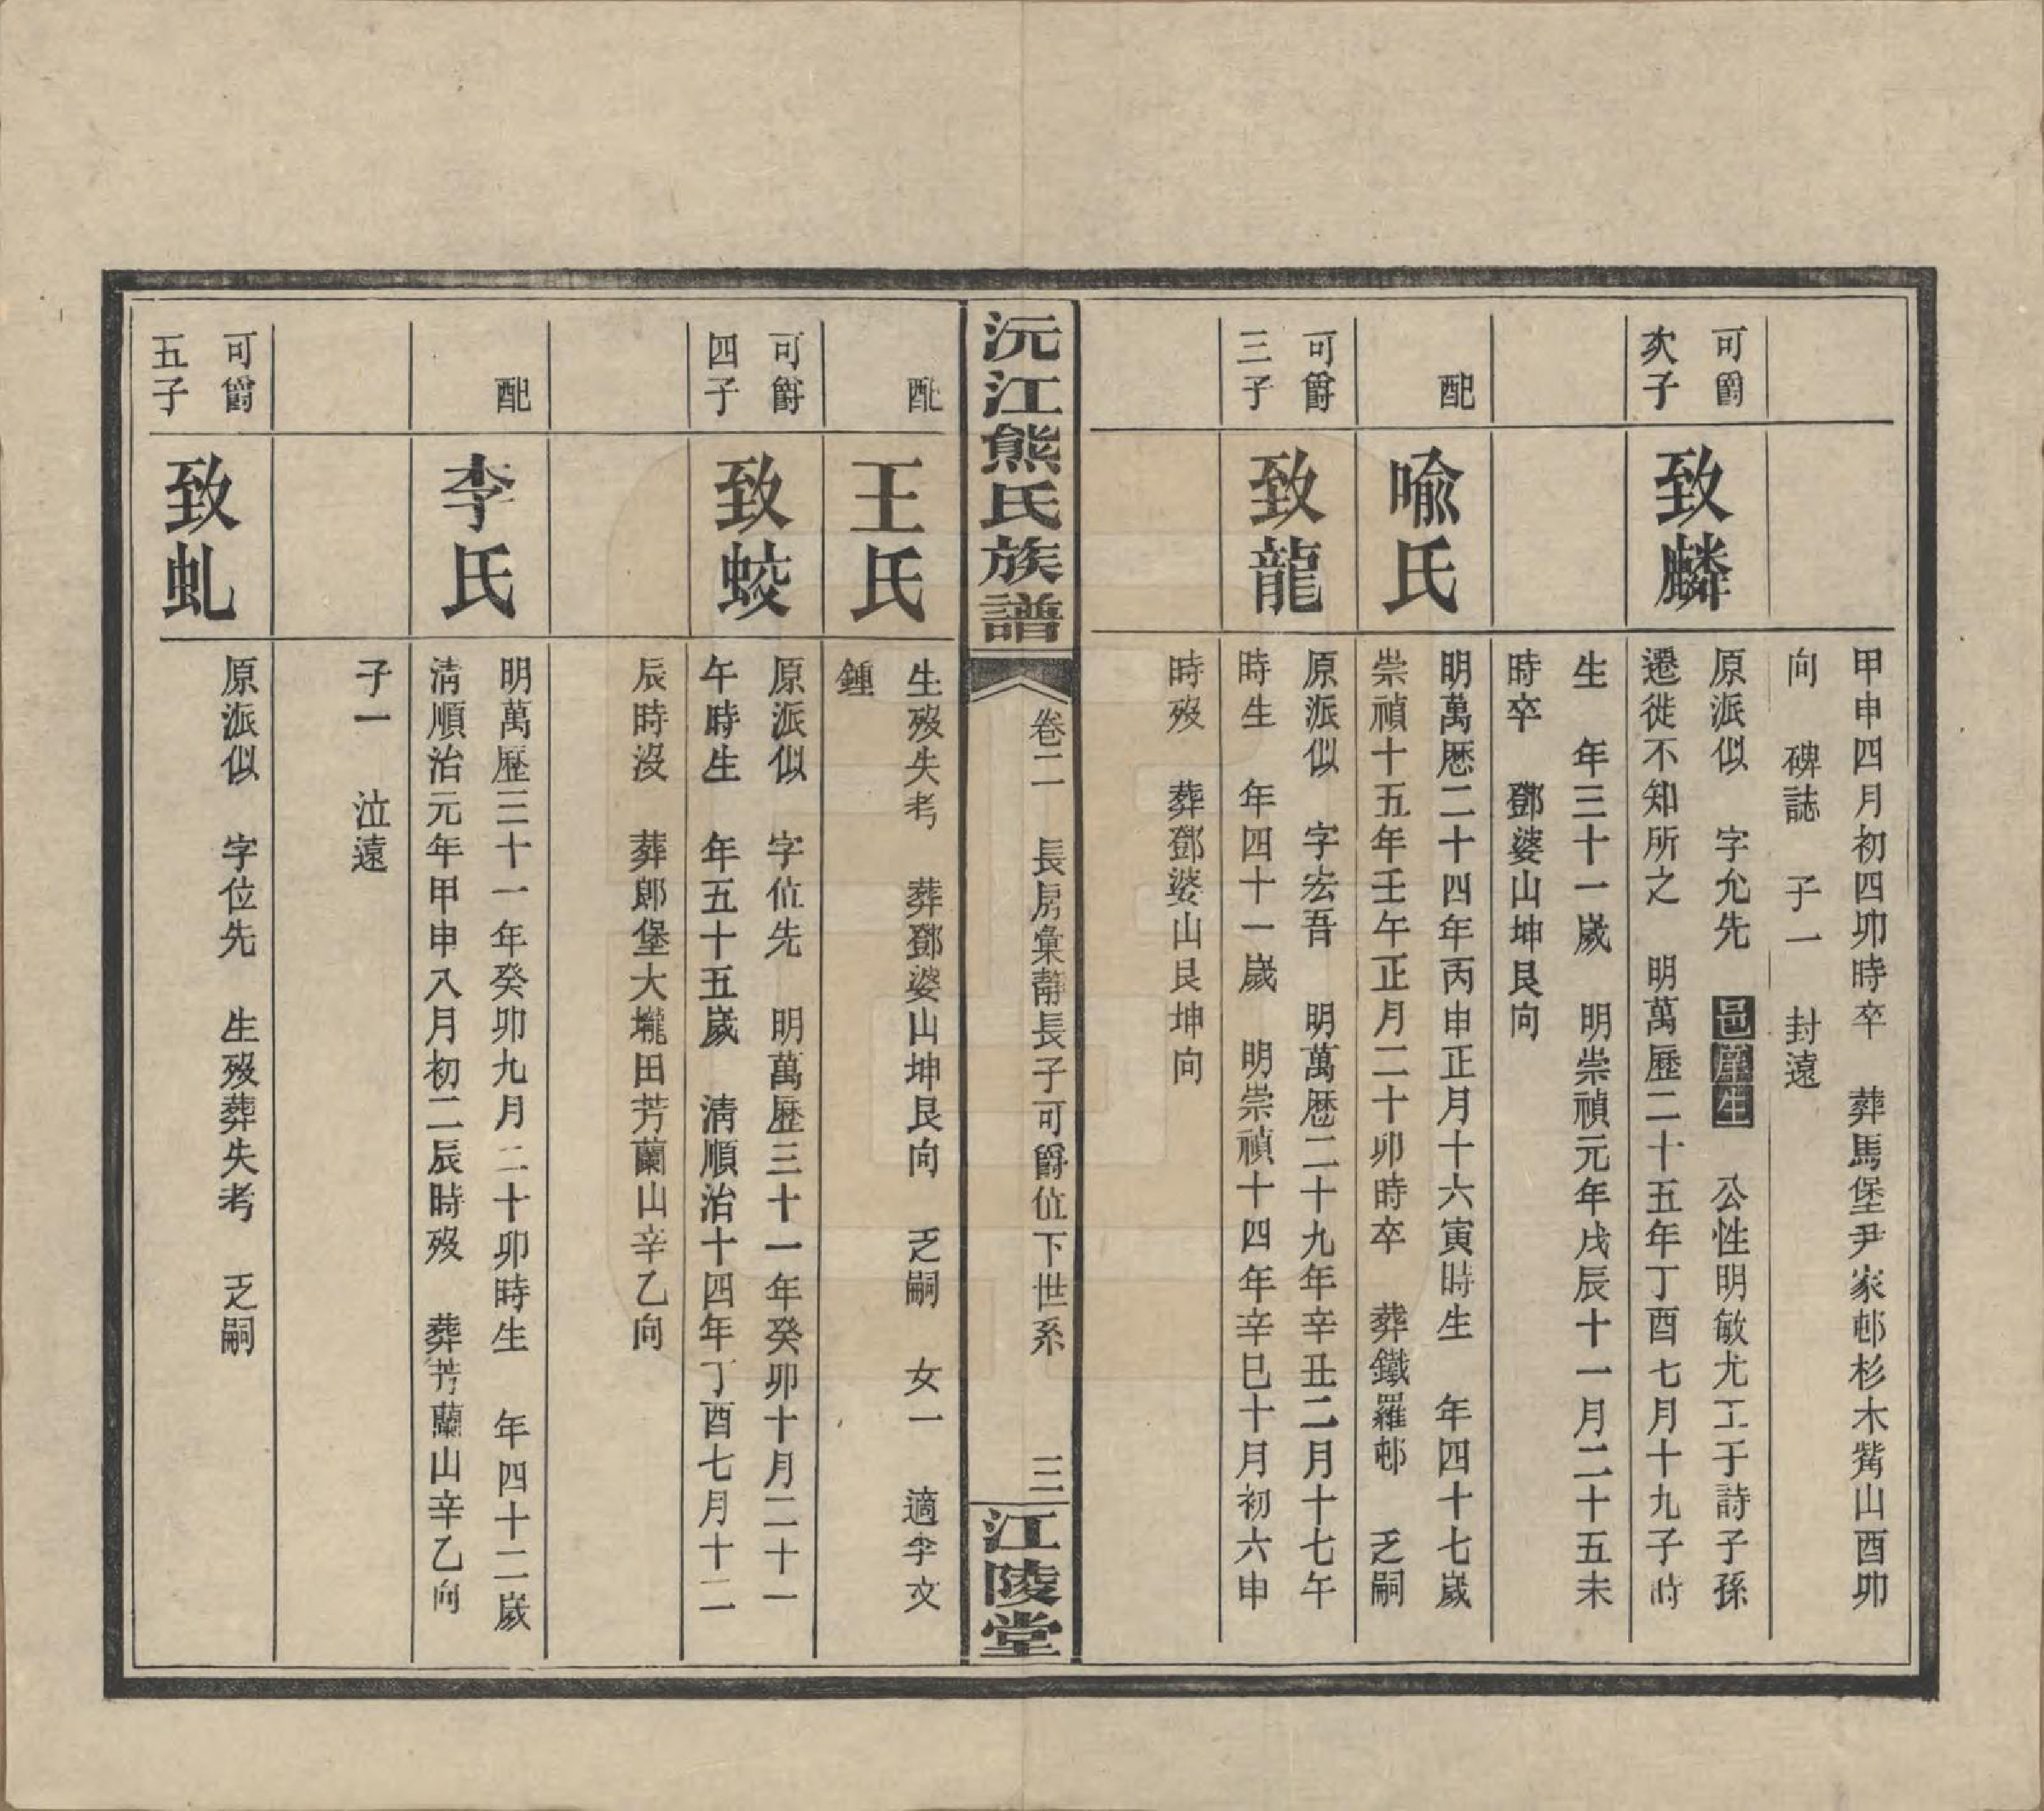 甲申四月初四卯時卒　葬馬堡尹家邨杉木觜山酉卯
向　碑誌　子一　封遠
可爵
次子
致麟
原派似　字允先　邑庠生　公性明敏尤工于詩子孫
遷徙不知所之　明萬歷二十五年丁酉七月十九子時
生　年三十一歲　明崇禎元年戊辰十一月二十五未
時卒　鄧婆山坤艮向
配
喩氏
明萬歷二十四年丙申正月十六寅時生　年四十七歲
崇禎十五年壬午正月二十卯時卒　葬鐵羅邨　乏嗣
可爵
三子
致龍
原派似　字宏吾　明萬歷二十九年辛丑二月十七午
時生　年四十一歲　明崇禎十四年辛巳十月初六申
時歿　葬鄧婆山艮坤向
沅江熊氏族譜
卷二　長房彙靜長子可爵位下世系　三
江陵堂
配
王氏
生歿失考　葬鄧婆山坤艮向　乏嗣　女一　適李文
鍾
可爵
四子
致蛟
原派似　字位先　明萬歷三十一年癸卯十月二十一
午時生　年五十五歲　清順治十四年丁酉七月十二
辰時沒　葬郎堡大壠田芳蘭山辛乙向
配
李氏
明萬歷三十一年癸卯九月二十卯時生　年四十二歲
清順治元年甲申八月初二辰時歿　葬芳蘭山辛乙向
子一　泣遠
可爵
五子
致虬
原派似　字位先　生歿葬失考　乏嗣